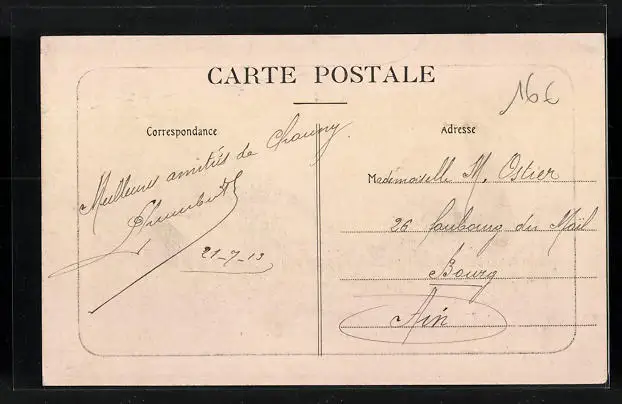 CARTE POSTALE
16€
Correspondance
Meilleures amitiés de Chauny
21-7-13
Adresse
Mademoiselle M. Ostier
26 faubourg du Mail
Bourg
Ain